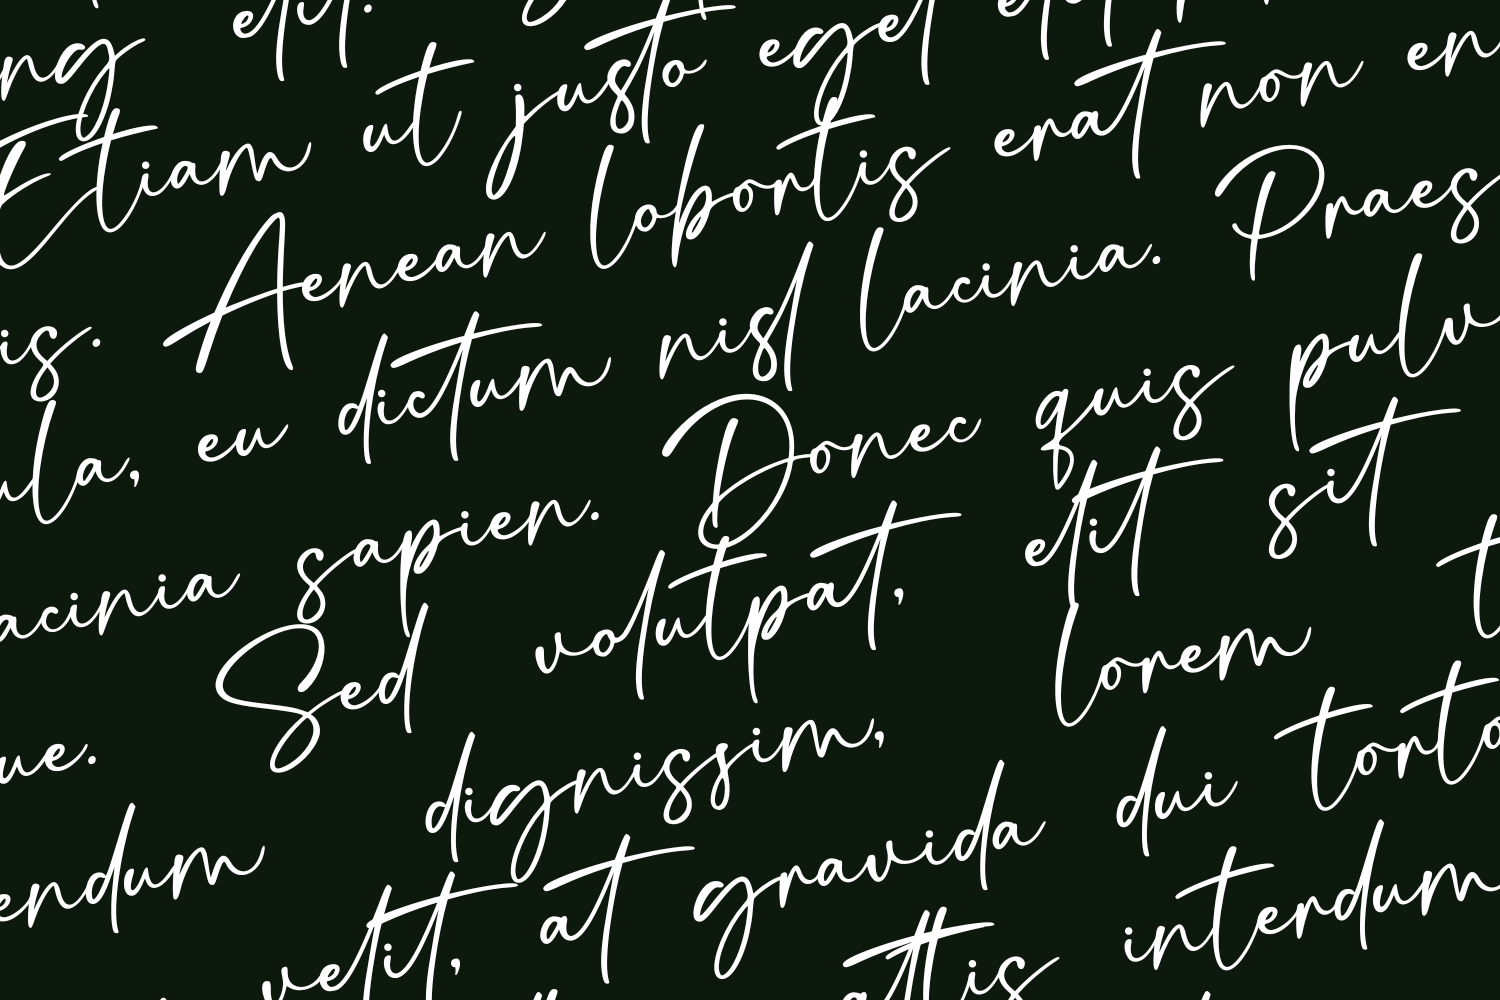 ng elit.
Etiam ut justo eget elit
is. Aenean lobortis erat non en
ula, eu dictum nisl lacinia. Praes
acinia sapien. Donec quis pulv
ue. Sed volutpat, elit sit
endum dignissim, lorem t
velit, at gravida dui torto
attis interdum